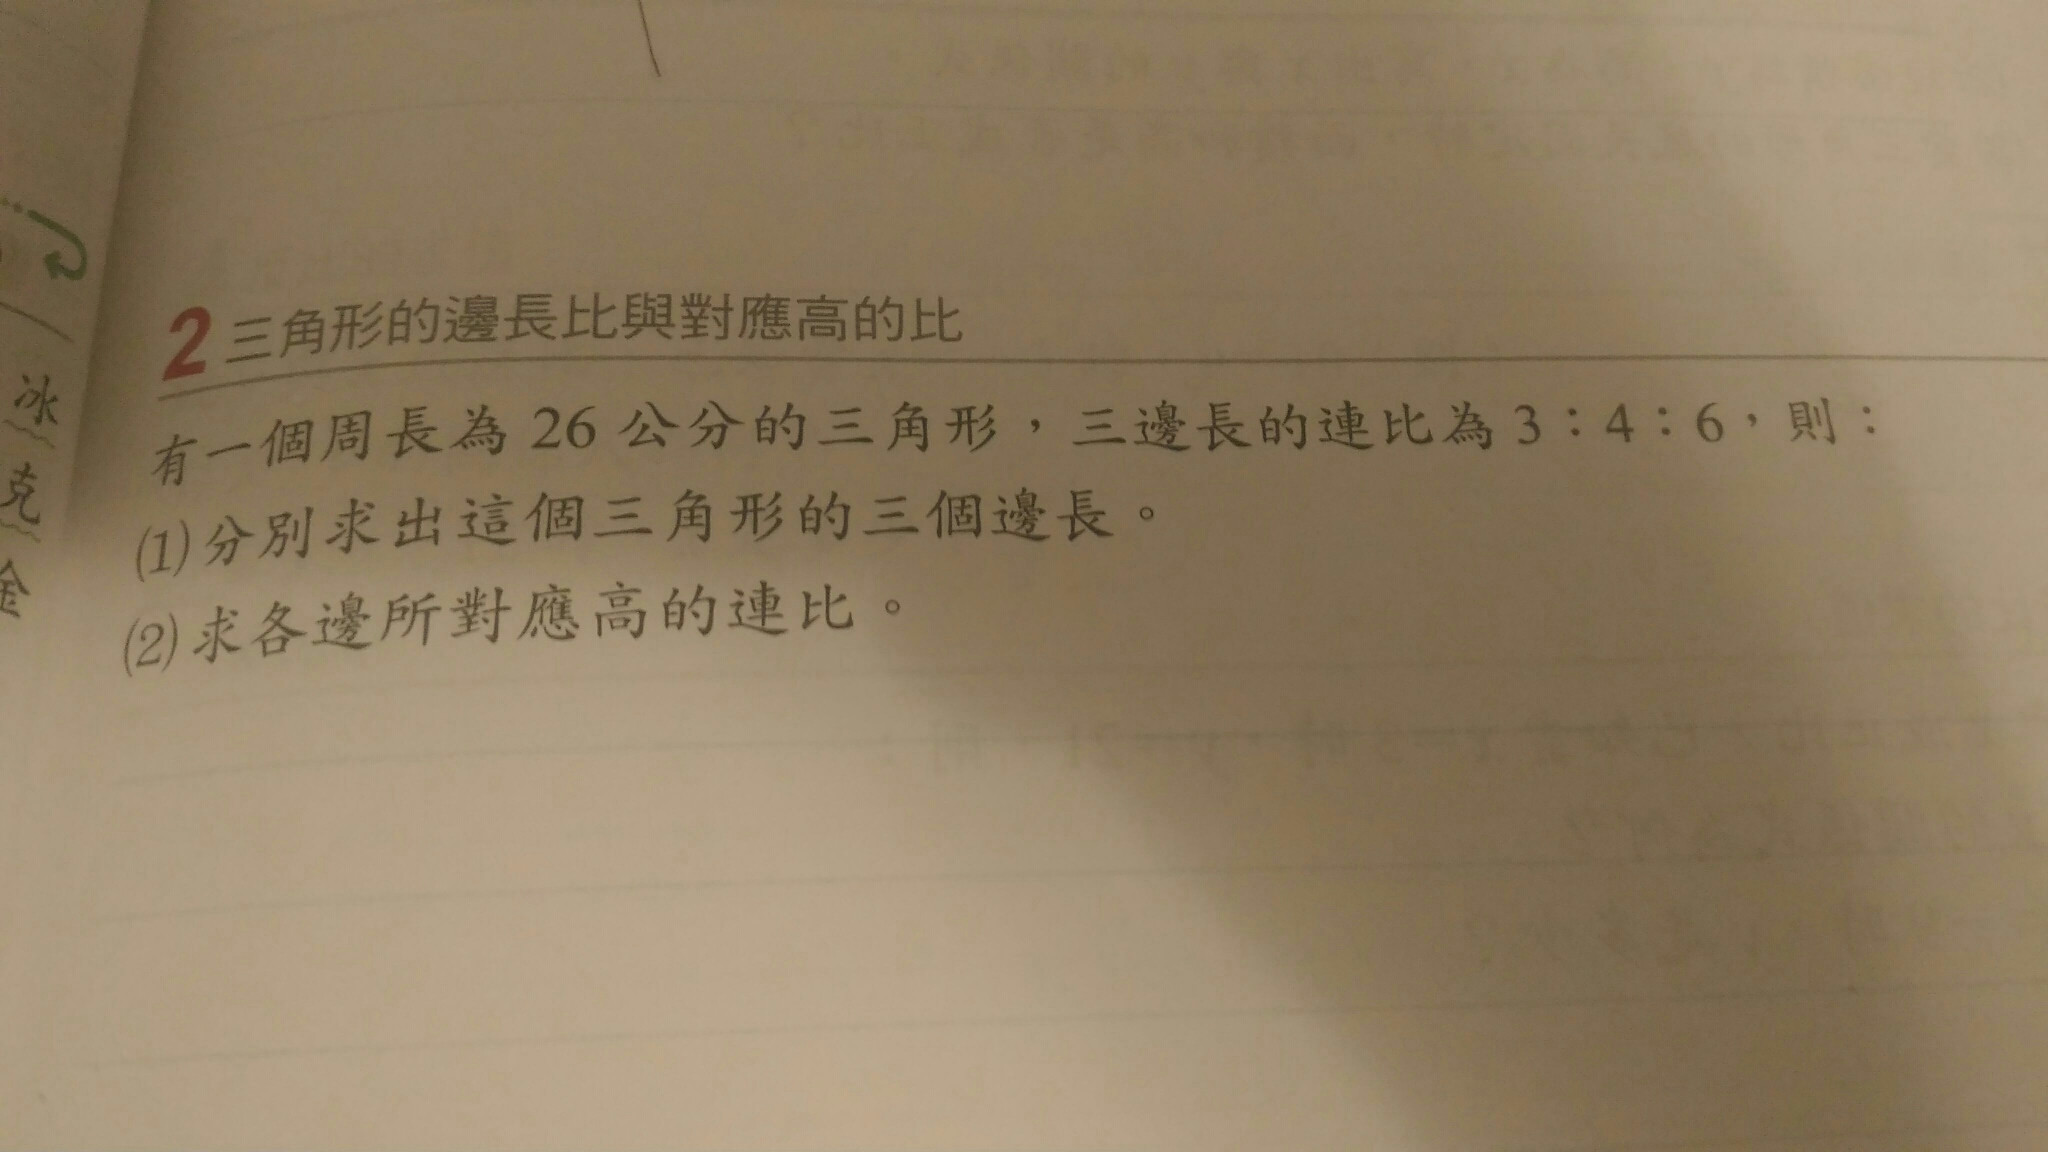 2 三角形的邊長比與對應高的比
有一個周長為 26 公分的三角形，三邊長的連比為 3：4：6，則：
(1)分別求出這個三角形的三個邊長。
(2)求各邊所對應高的連比。
冰
克
金